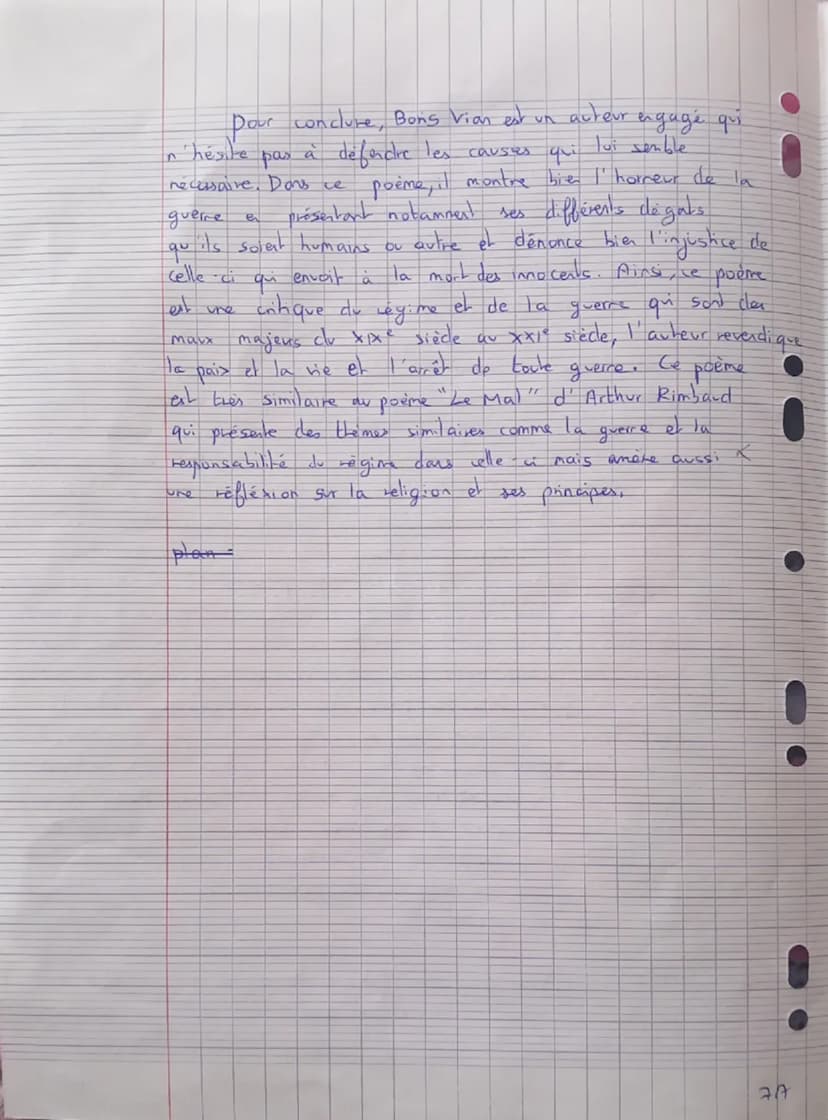 Pour conclure, Boris Vian est un auteur engagé qui
n'hésite pas à défendre les causes qui lui semble
nécessaire. Dans ce poème, il montre bien l'horreur de la
guerre en présentant notamment ses différents dégats
qu'ils soient humains ou autre et dénonce bien l'injustice de
celle-ci qui envoit à la mort des innocents. Ainsi, ce poème
est une critique du régime et de la guerre qui sont des
maux majeurs du XIXe siècle au XXIe siècle, l'auteur revendique
la paix et la vie et l'arrêt de toute guerre. Ce poème
est très similaire au poème "Le Mal" d'Arthur Rimbaud
qui présente des thèmes similaires comme la guerre et la
responsabilité du régime dans celle-ci mais amène aussi
une réfléxion sur la religion et ses principes.
plan=